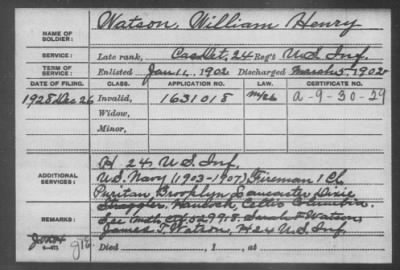 NAME OF SOLDIER: Watson, William Henry
SERVICE: Late rank, Cas Det, 24 Reg't U.S. Inf.
TERM OF SERVICE: Enlisted Jan 1902 Discharged 1902
DATE OF FILING. CLASS. APPLICATION NO. LAW. CERTIFICATE NO.
1928 Dec 26 Invalid, 1631018 A-9-30-29
Widow,
Minor,
H 24, U.S. Inf.
ADDITIONAL SERVICES: U.S. Navy (1903-1907) Fireman 1 Cl.
Puritan, Brooklyn, Lancaster, Dixie
Hancock, Celtic Columbia.
REMARKS: See 529918. Sarah F Watson
James T. Watson, H 24 U.S. Inf
Died , 1 , at